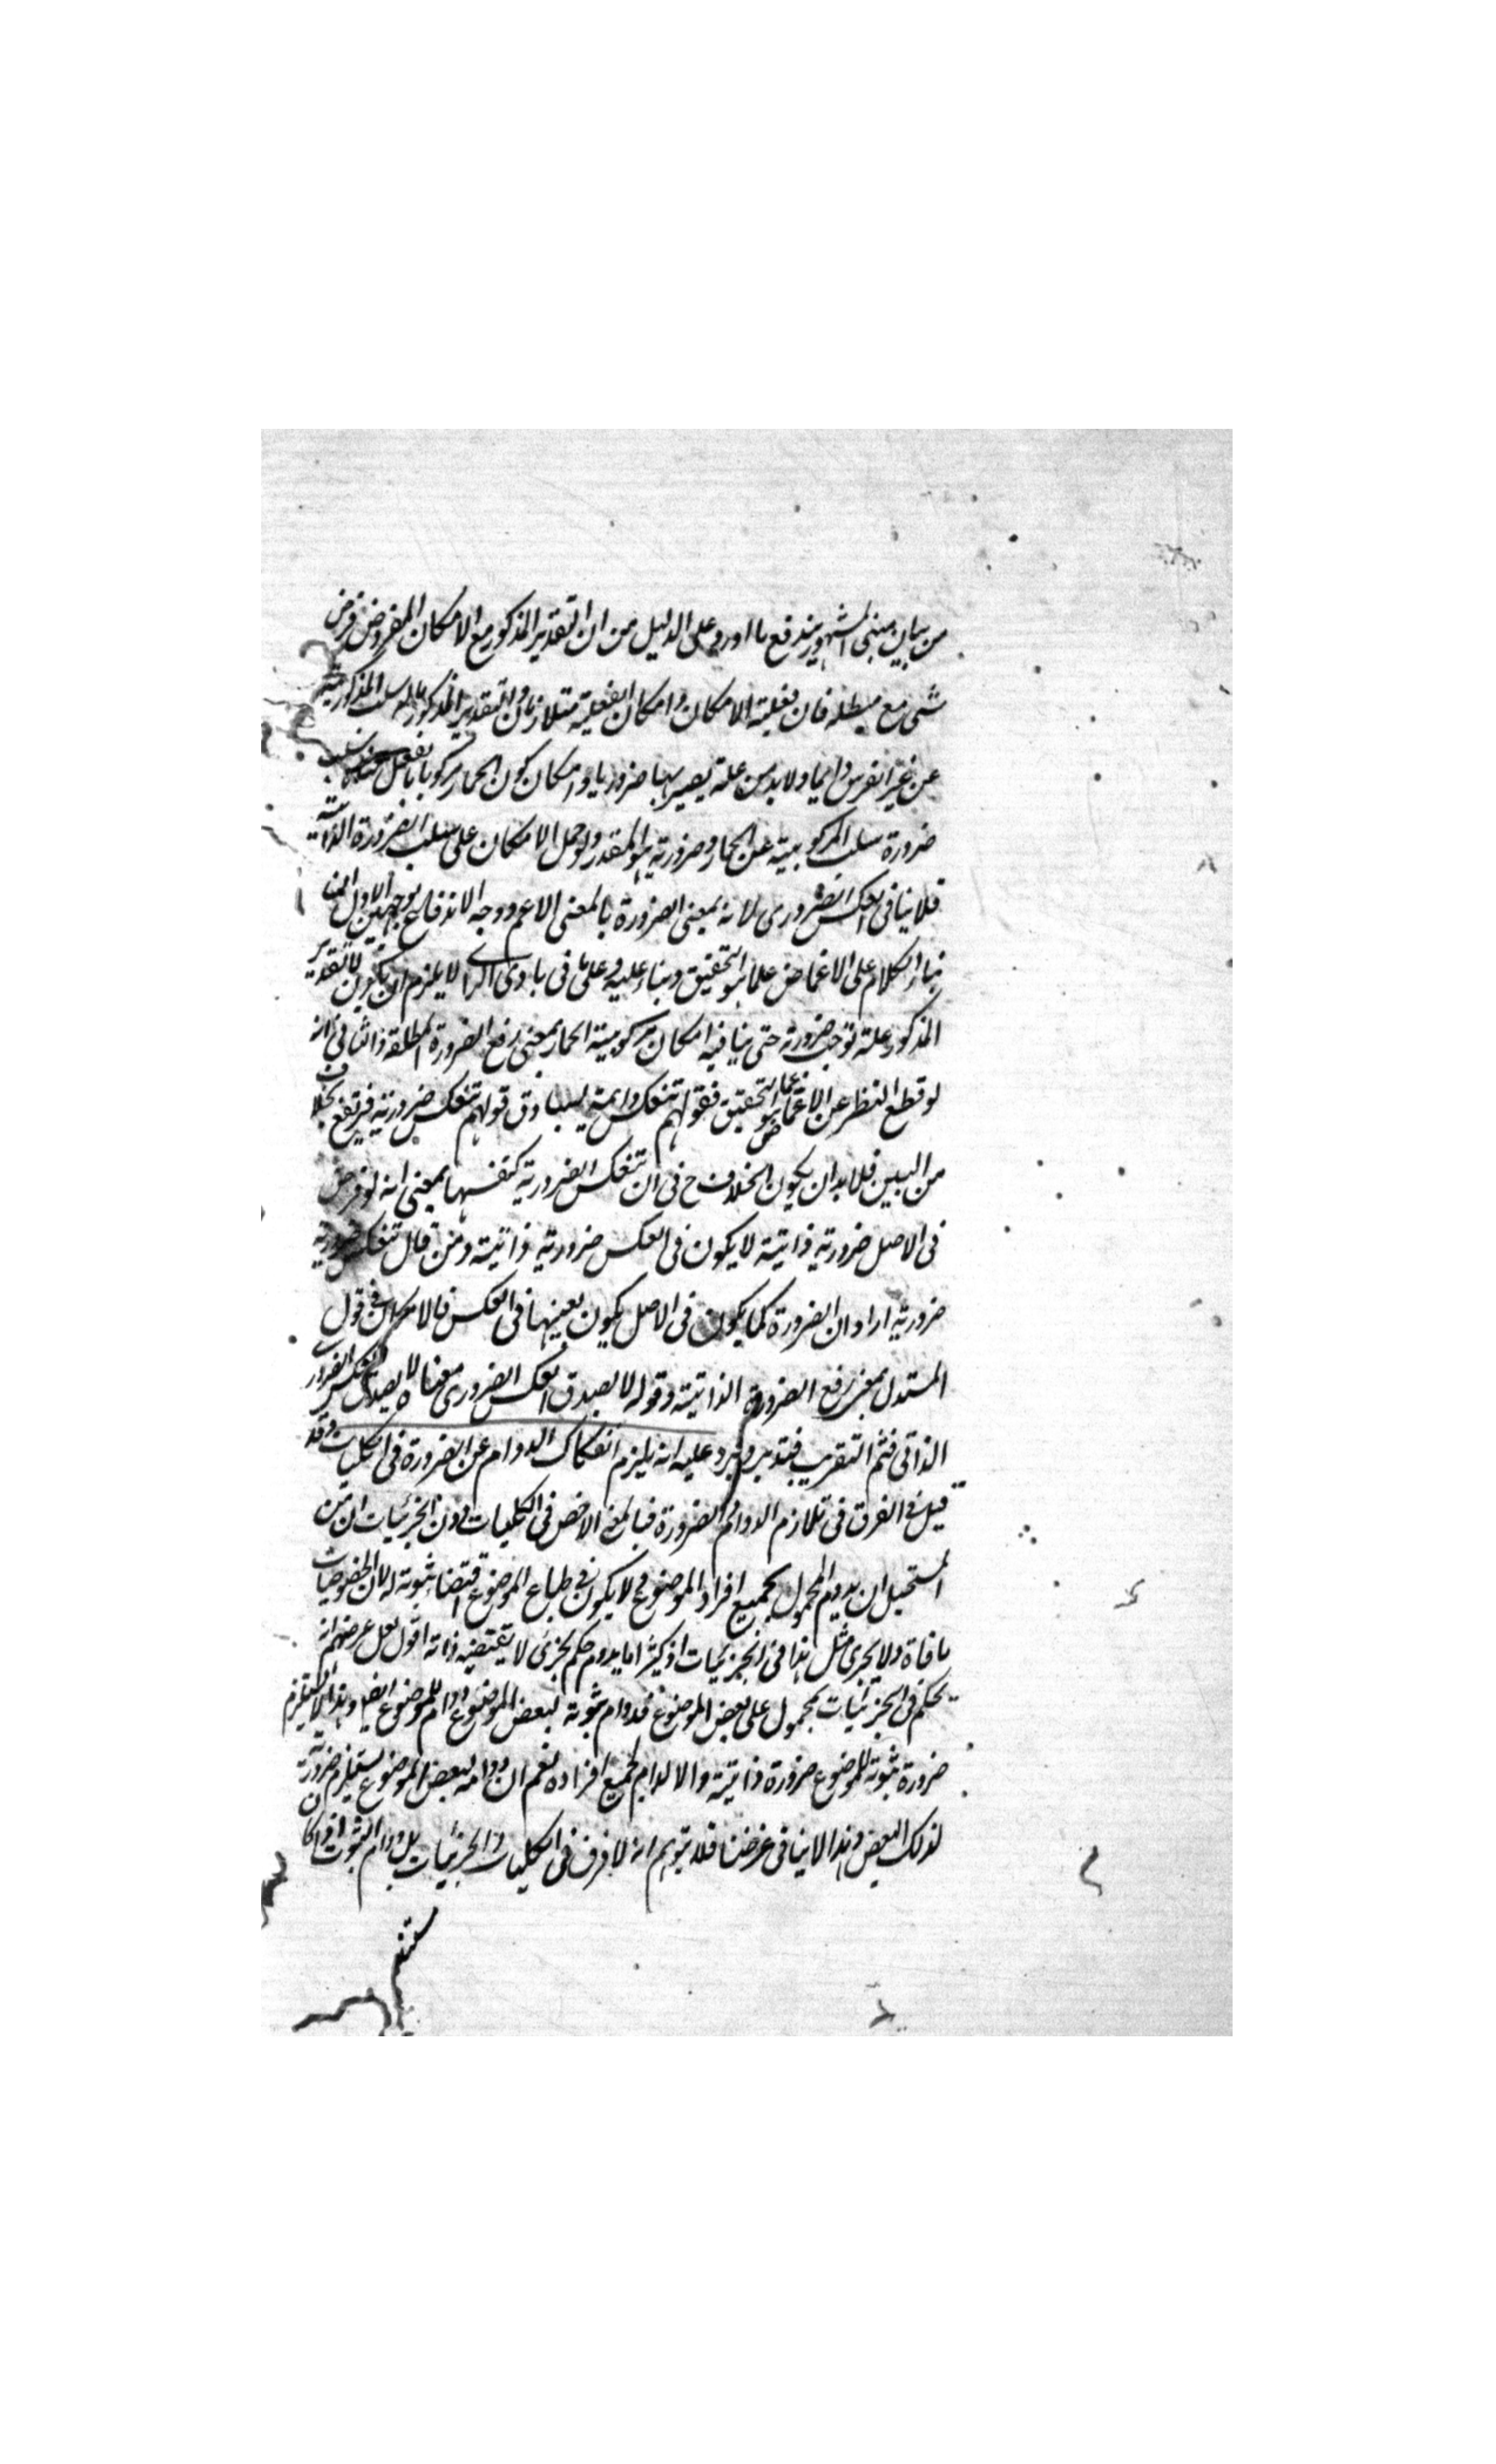 من بيان مبنى المشهور يندفع ما اورد على الدليل من ان التقدير المذكور مع الامكان المفروض فرض
شىء مع مبطله فان فعلية الامكان وامكان الفعلية متلازمان والتقدير المذكور سلب المركوبية
عن غير الفرس دايما ولابد من علة يصير بها ضروريا وامكان كون الحمار مركوبا بالفعل سلب
ضرورة سلب المركوبية عن الحمار وضرورته هو المقدر ولو حمل الامكان على سلب الضرورة الذاتية
فلا ينافى العكس الضرورى لانه بمعنى الضرورة بالمعنى الاعم ووجه الاندفاع بوجهين الاول ان
بناء الكلام على الاغماض عما هو التحقيق وبناء عليه وعلى ما فى بادى الراى لا يلزم ان يكون للتقدير
المذكور علة توجب ضرورته حتى ينافيه امكان مركوبية الحمار بمعنى رفع الضرورة المطلقة والثانى انه
لو قطع النظر عن الاغماض عما هو التحقيق فقولهم تنعكس دائمة يساوق قولهم تنعكس ضرورية فيرتفع الخلاف
من البين فلابد ان يكون الخلاف ح فى ان تنعكس الضرورية كنفسها بمعنى انه لو فرض
فى الاصل ضرورة ذاتية لا يكون فى العكس ضرورة ذاتية ومن قال تنعكس ضرورية
ضرورية اراد ان الضرورة كما يكون فى الاصل يكون بعينها فى العكس فالامكان فى قول
المستدل بمعنى رفع الضرورة الذاتية وقوله لا يصدق العكس الضرورى معناه لا يصدق العكس الضرورى
الذاتى فتم التقريب فتدبر ويرد عليه انه يلزم انفكاك الدوام عن الضرورة فى الكليات وقد
قيل فى الفرق فى تلازم الدوام والضرورة فبالمعنى الاخص فى الكليات دون الجزئيات ان من
المستحيل ان يدوم المحمول لجميع افراد الموضوع ولا يكون فى طباع الموضوع اقتضاء ثبوته له لان الخصوصيات
ملفاة ولا يجرى مثل هذا فى الجزئيات اذ كثيرا ما يدوم حكم لجزئى لا يقتضيه ذاته اقول لعل غرضهم انه
يحكم فى الجزئيات بمحمول على بعض الموضوع فدوام ثبوته لبعض الموضوع دوام للموضوع ايضا وهذا لا يستلزم
ضرورة ثبوته للموضوع ضرورة ذاتية والا لدام لجميع افراده نعم ان دوامه لبعض الموضوع يستلزم ضرورته
لذلك البعض وهذا لا ينافى غرضنا فلا يتوهم انه لا فرق فى الكليات والجزئيات بل دوام الثبوت اذا كان